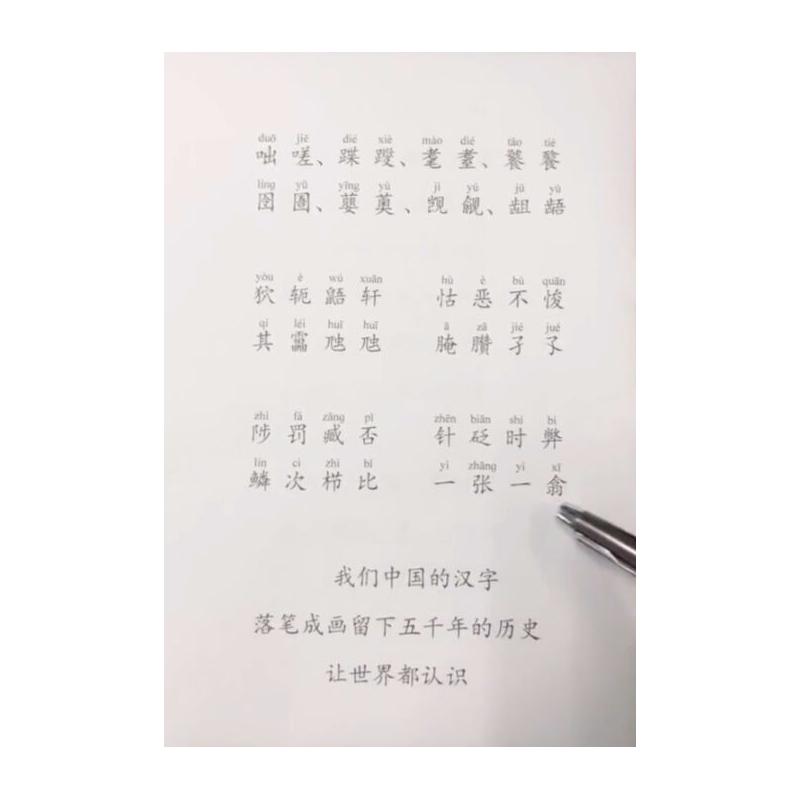 duō jiē dié xiè mào dié tāo tiè
咄嗟、蹀躞、耄耋、饕餮
líng yǔ yīng yù jì yú jǔ yǔ
囹圄、蘡薁、觊觎、龃龉
yòu è wú xuān hù è bù quān
狖轭鼯轩 怙恶不悛
qí léi huī huī ā zā jié jué
其靁虺虺 腌臜孑孓
zhì fá zāng pǐ zhēn biān shí bì
陟罚臧否 针砭时弊
lín cì zhì bǐ yì zhāng yì xī
鳞次栉比 一张一翕
我们中国的汉字
落笔成画留下五千年的历史
让世界都认识